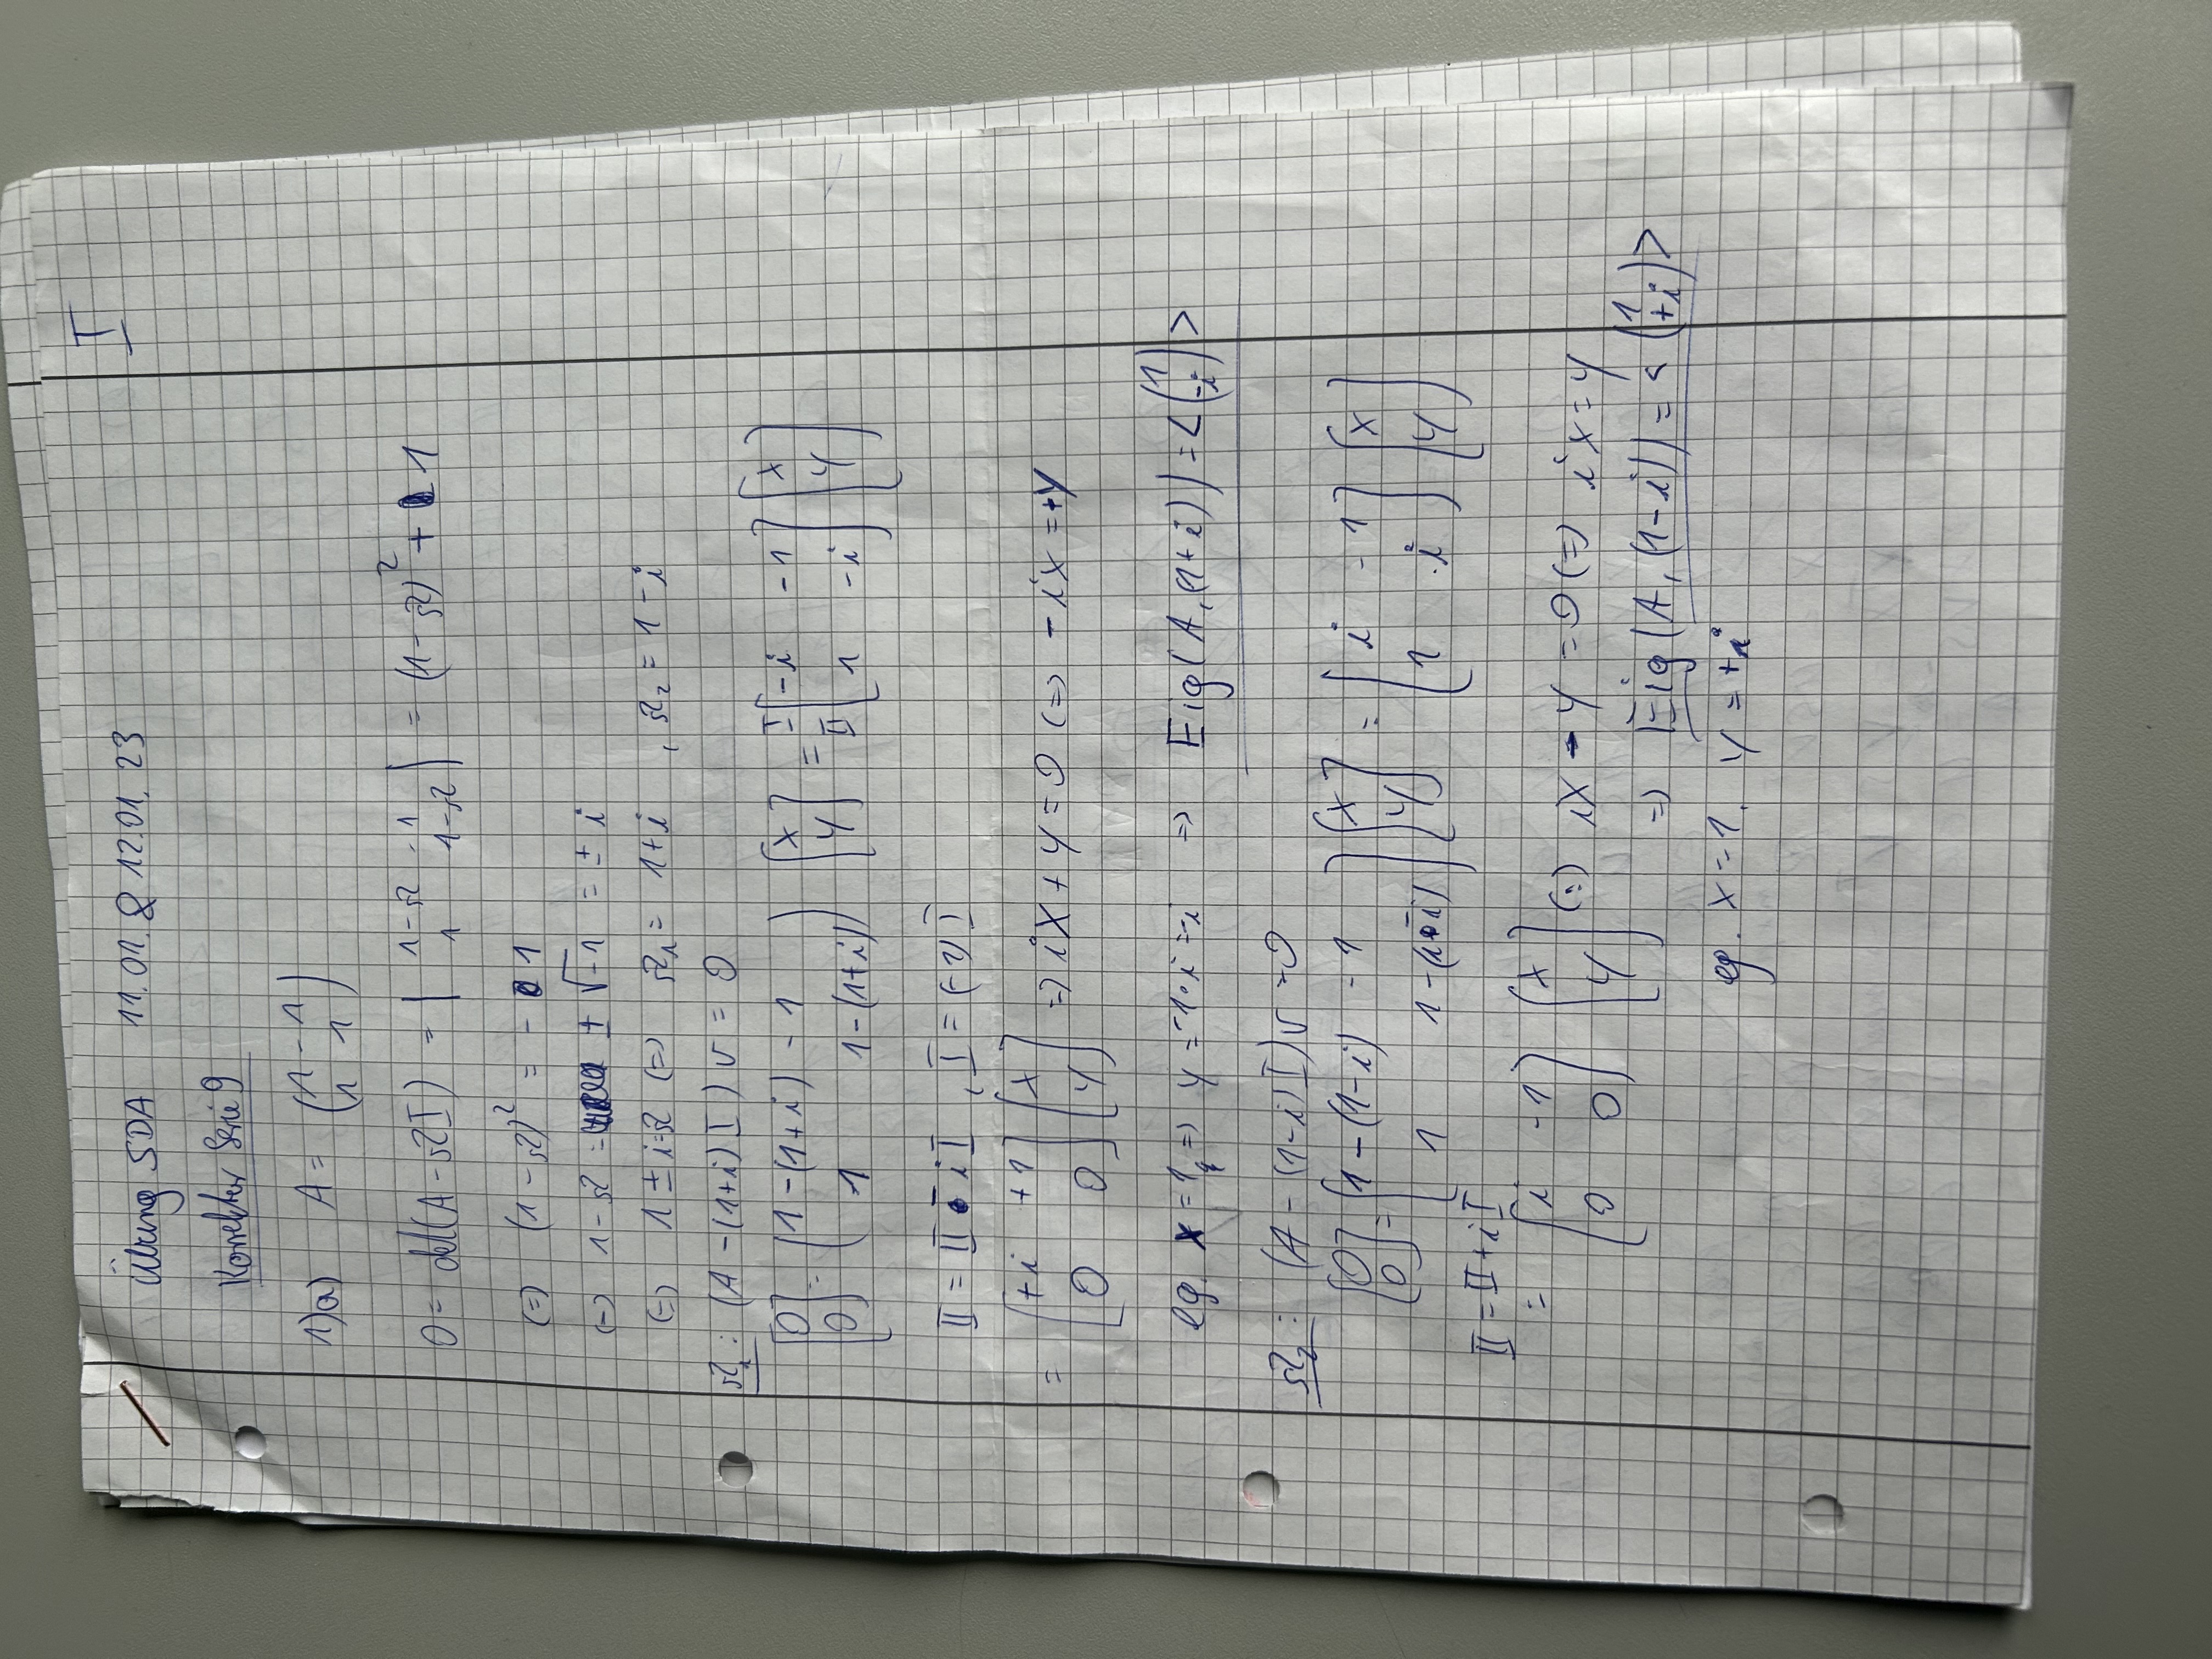 I
Übung SDA 11.01. & 12.01.23
Korrektur Serie 9
1)a) A = (1 -1
1 1)
0 = det(A - λI) = | 1-λ -1
1 1-λ | = (1-λ)² + 1
(=) (1-λ)² = -1
(=) 1-λ = ± √-1 = ± i
(=) 1 ± i = λ (=) λ₁ = 1+i , λ₂ = 1-i
λ₁: (A - (1+i) I) v = 0
[0
0] = (1-(1+i) -1
1 1-(1+i)) [x
y] = I II [-i -1
1 -i] [x
y]
II = II - i I , I = (-1) I
= [+i +1
0 0] [x
y] => ix + y = 0 (=) -ix = +y
eg. x = 1, => y = -1·i = -i => Eig(A, (1+i)) = <(1
-i)>
λ₂: (A - (1-i) I) v = 0
[0
0] = [1-(1-i) -1
1 1-(1-i)] [x
y] = [i -1
1 i] [x
y]
II = II + i I
= [i -1
0 0] [x
y] (=) ix - y = 0 (=) ix = y
=> Eig(A, (1-i)) = <(1
+i)>
eg. x = 1, y = +i